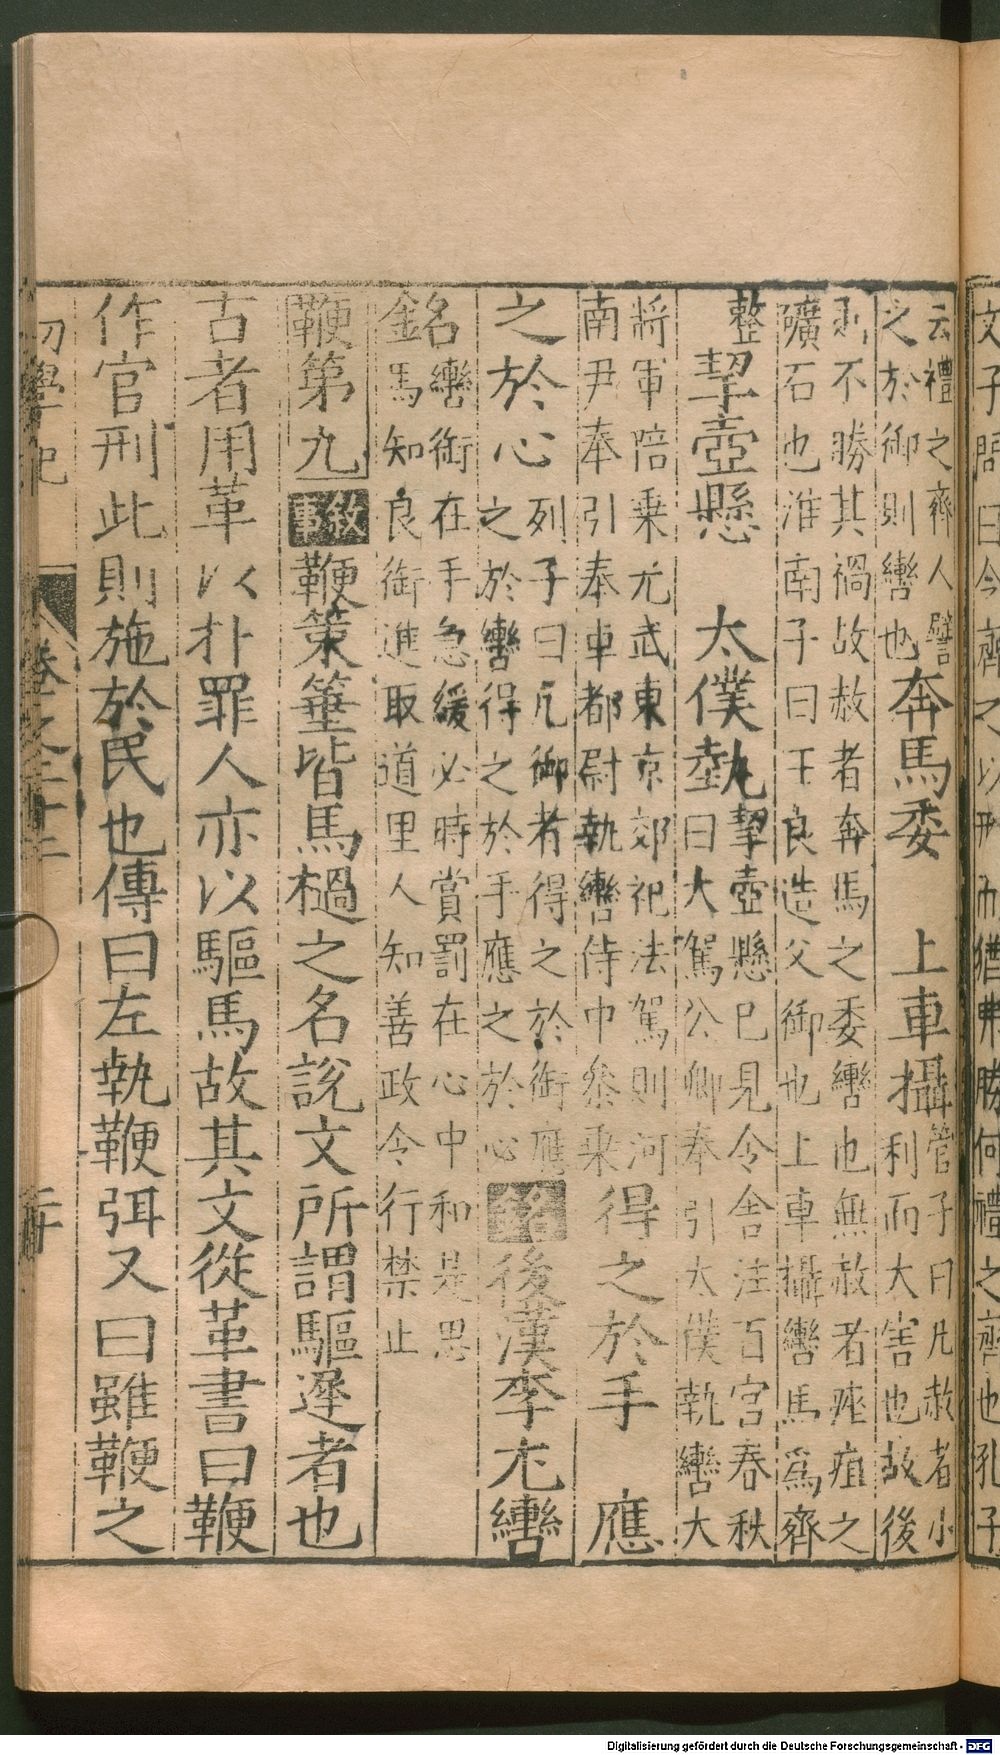 文子問曰今齊之以刑而猶弗勝何禮之齊也孔子
云禮之齊人譬
之於御則轡也
奔馬委　上車攝
管子曰凡赦者小
利而大害也故後
不勝其禍故赦者奔馬之委轡也無赦者痤疽之
礦石也淮南子曰王良造父御也上車攝轡馬爲齊
整
挈壺懸　太僕執
挈壺懸已見令舍注百官春秋
曰大駕公卿奉引太僕執轡大
將軍陪乗光武東京郊祀法駕則河
南尹奉引奉車都尉執轡侍中參乗
得之於手　應
之於心
列子曰凡御者得之於銜應
之於轡得之於手應之於心
銘
後漢李尤轡
銘
轡銜在手急緩必時賞罰在心中和是思
馬知良銜進取道里人知善政令行禁止
鞭第九
敘事
鞭策箠皆馬檛之名說文所謂驅遲者也
古者用革以扑罪人亦以驅馬故其文從革書曰鞭
作官刑此則施於民也傳曰左執鞭弭又曰雖鞭之
初學記　卷之二十二　二十
Digitalisierung gefördert durch die Deutsche Forschungsgemeinschaft - DFG